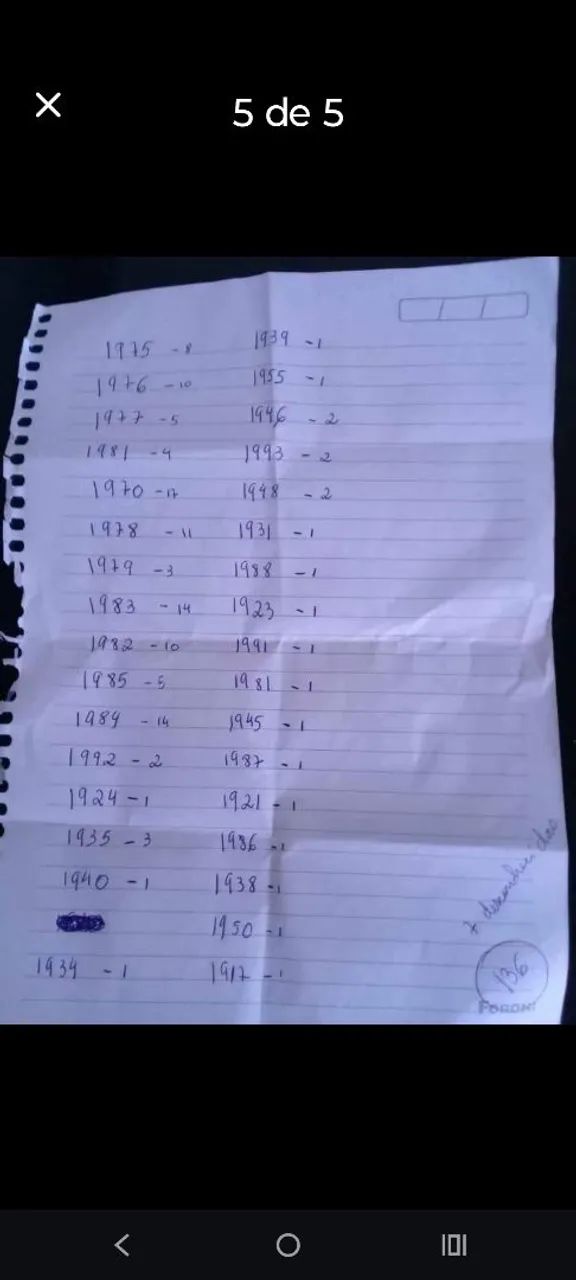 5 de 5
1975 - 8
1976 - 10
1977 - 5
1981 - 4
1970 - 17
1978 - 11
1979 - 3
1983 - 14
1982 - 10
1985 - 5
1984 - 14
1992 - 2
1924 - 1
1935 - 3
1940 - 1
1934 - 1
1939 - 1
1955 - 1
1946 - 2
1993 - 2
1948 - 2
1931 - 1
1988 - 1
1923 - 1
1991 - 1
1981 - 1
1945 - 1
1987 - 1
1921 - 1
1986 - 1
1938 - 1
1950 - 1
1917 - 1
136
FORONI